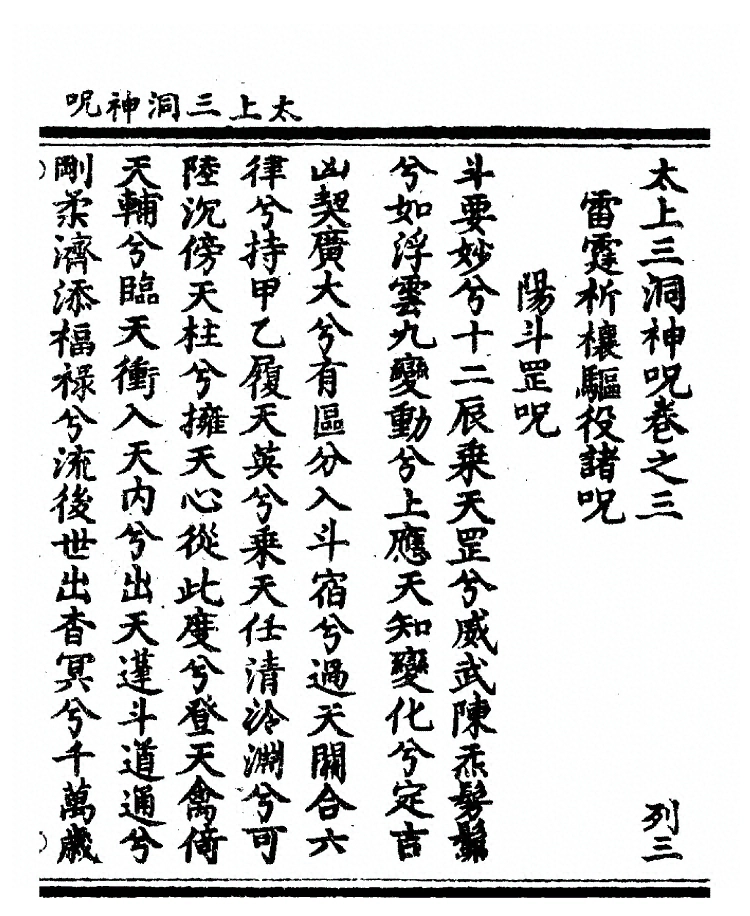 太上三洞神呪
太上三洞神呪卷之三 列三
雷霆析禳驅役諸呪
陽斗罡呪
斗要妙兮十二辰乗天罡兮威武陳炁髣髴
兮如浮雲九變動兮上應天知變化兮定吉
凶契廣大兮有區分入斗宿兮過天關合六
律兮持甲乙履天英兮乗天任清泠淵兮可
陸沉傍天柱兮擁天心從此度兮登天禽倚
天輔兮臨天衝入天内兮出天蓬斗道通兮
剛柔濟添福禄兮流後世出杳冥兮千萬歲